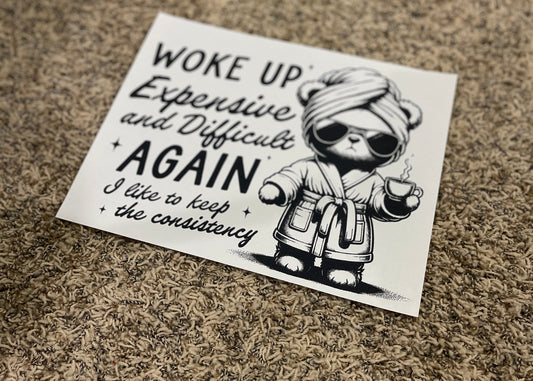 WOKE UP
Expensive
and Difficult
AGAIN
I like to keep
the consistency